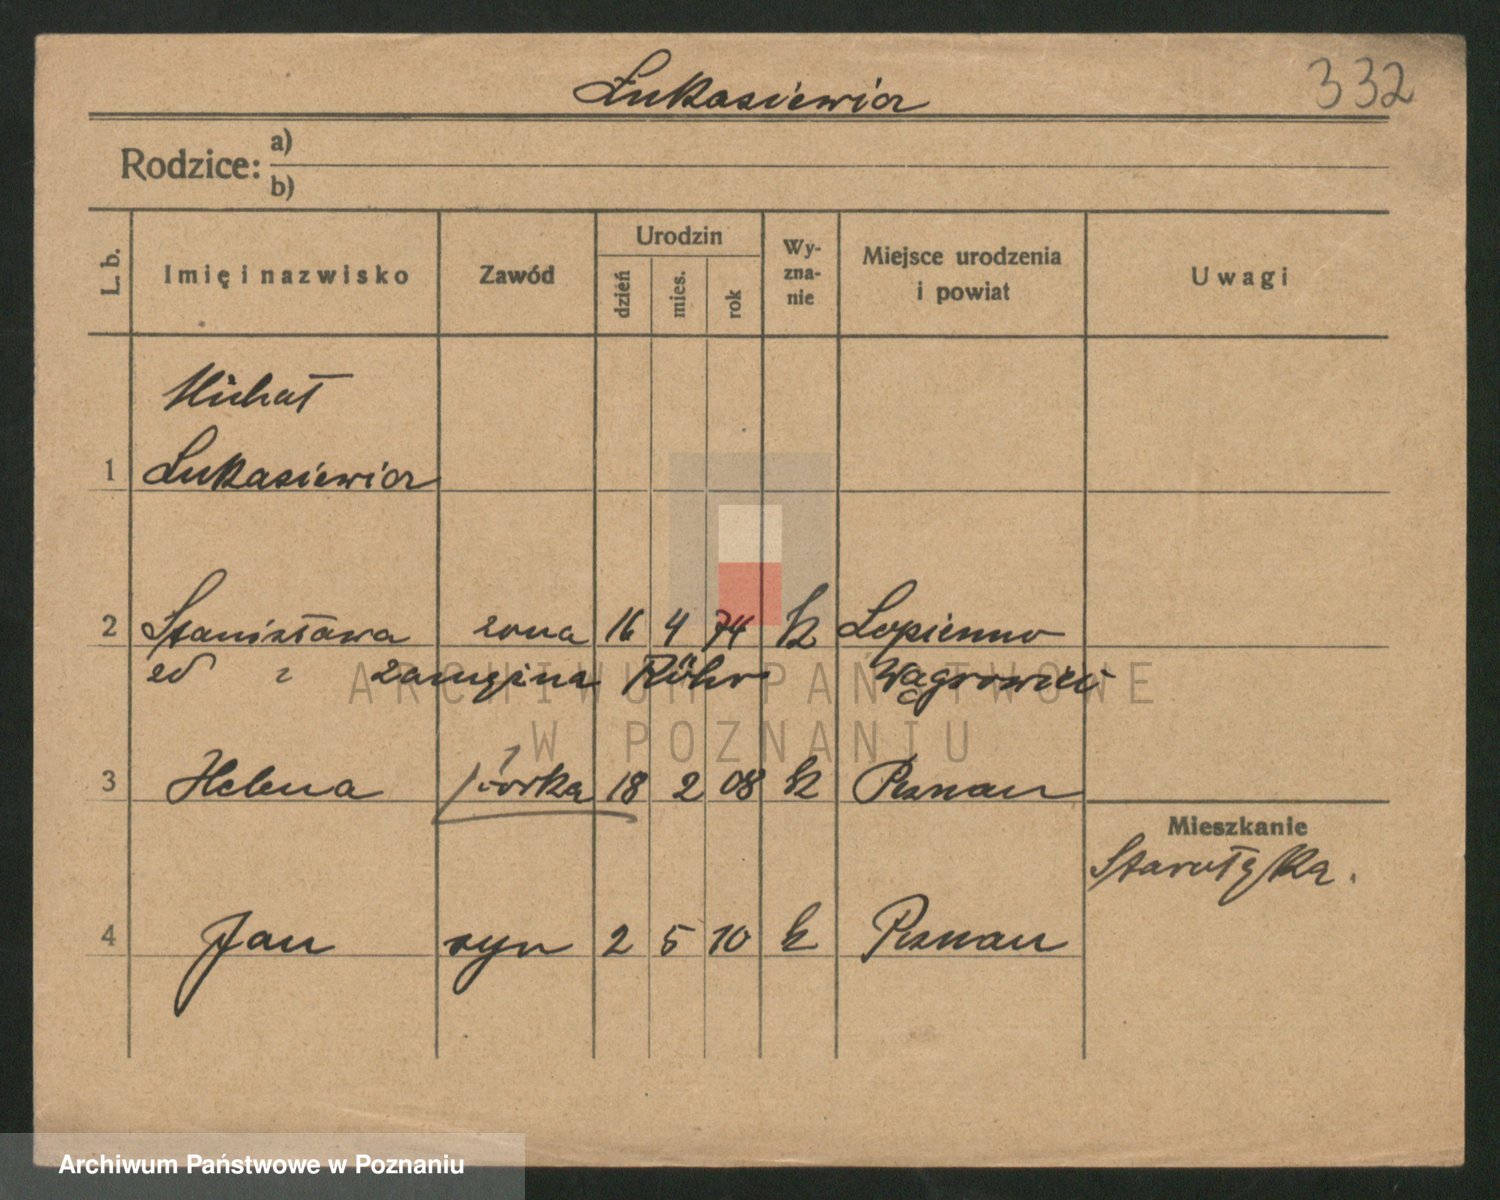 Łukasiewicz
332
Rodzice: a)
b)
L. b.
Imię i nazwisko
Zawód
Urodzin
dzień
mies.
rok
Wy-
zna-
nie
Miejsce urodzenia
i powiat
Uwagi
Michał
1 Łukasiewicz
2 Stanisława żona 16 4 74 k Łopienno
zamężna Röhr Wągrowiec
3 Helena córka 18 2 08 k Poznań
Mieszkanie
Starołęka.
4 Jan syn 2 5 10 k Poznań
ARCHIWUM PAŃSTWOWE
W POZNANIU
Archiwum Państwowe w Poznaniu